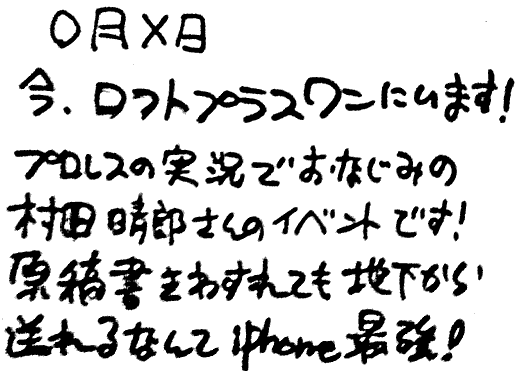 〇月×日
今、ロフトプラスワンにいます!
プロレスの実況でおなじみの
村田晴郎さんのイベントです!
原稿書きわすれても地下から
送れるなんてiphone最強!